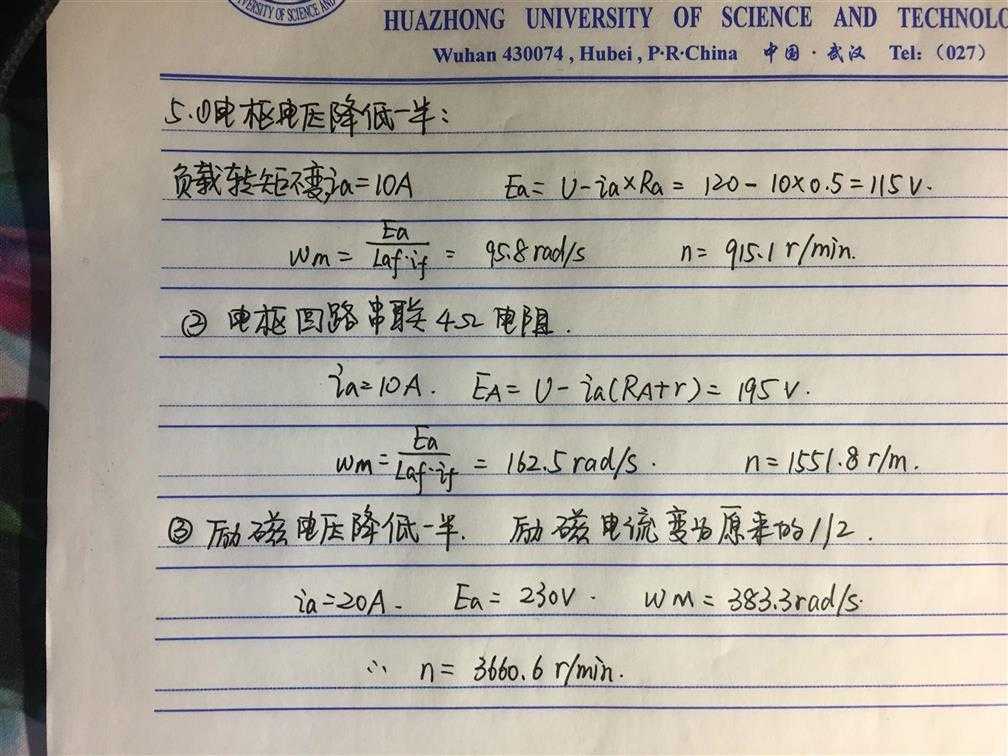 UNIVERSITY OF SCIENCE AND
HUAZHONG UNIVERSITY OF SCIENCE AND TECHNOLO
Wuhan 430074 , Hubei , P·R·China 中国 · 武汉 Tel: （027）
5.①电枢电压降低一半：
负载转矩不变, ia=10A Ea= U-ia×Ra= 120-10×0.5=115V.
wm= Ea/(Laf·if) = 95.8rad/s n= 915.1 r/min.
② 电枢回路串联4Ω电阻.
ia=10A. EA= U-ia(RA+r)= 195V.
wm= Ea/(Laf·if) = 162.5rad/s. n=1551.8 r/m.
③ 励磁电压降低一半. 励磁电流变为原来的1/2.
ia=20A. Ea= 230V. wm= 383.3rad/s.
∴ n= 3660.6 r/min.